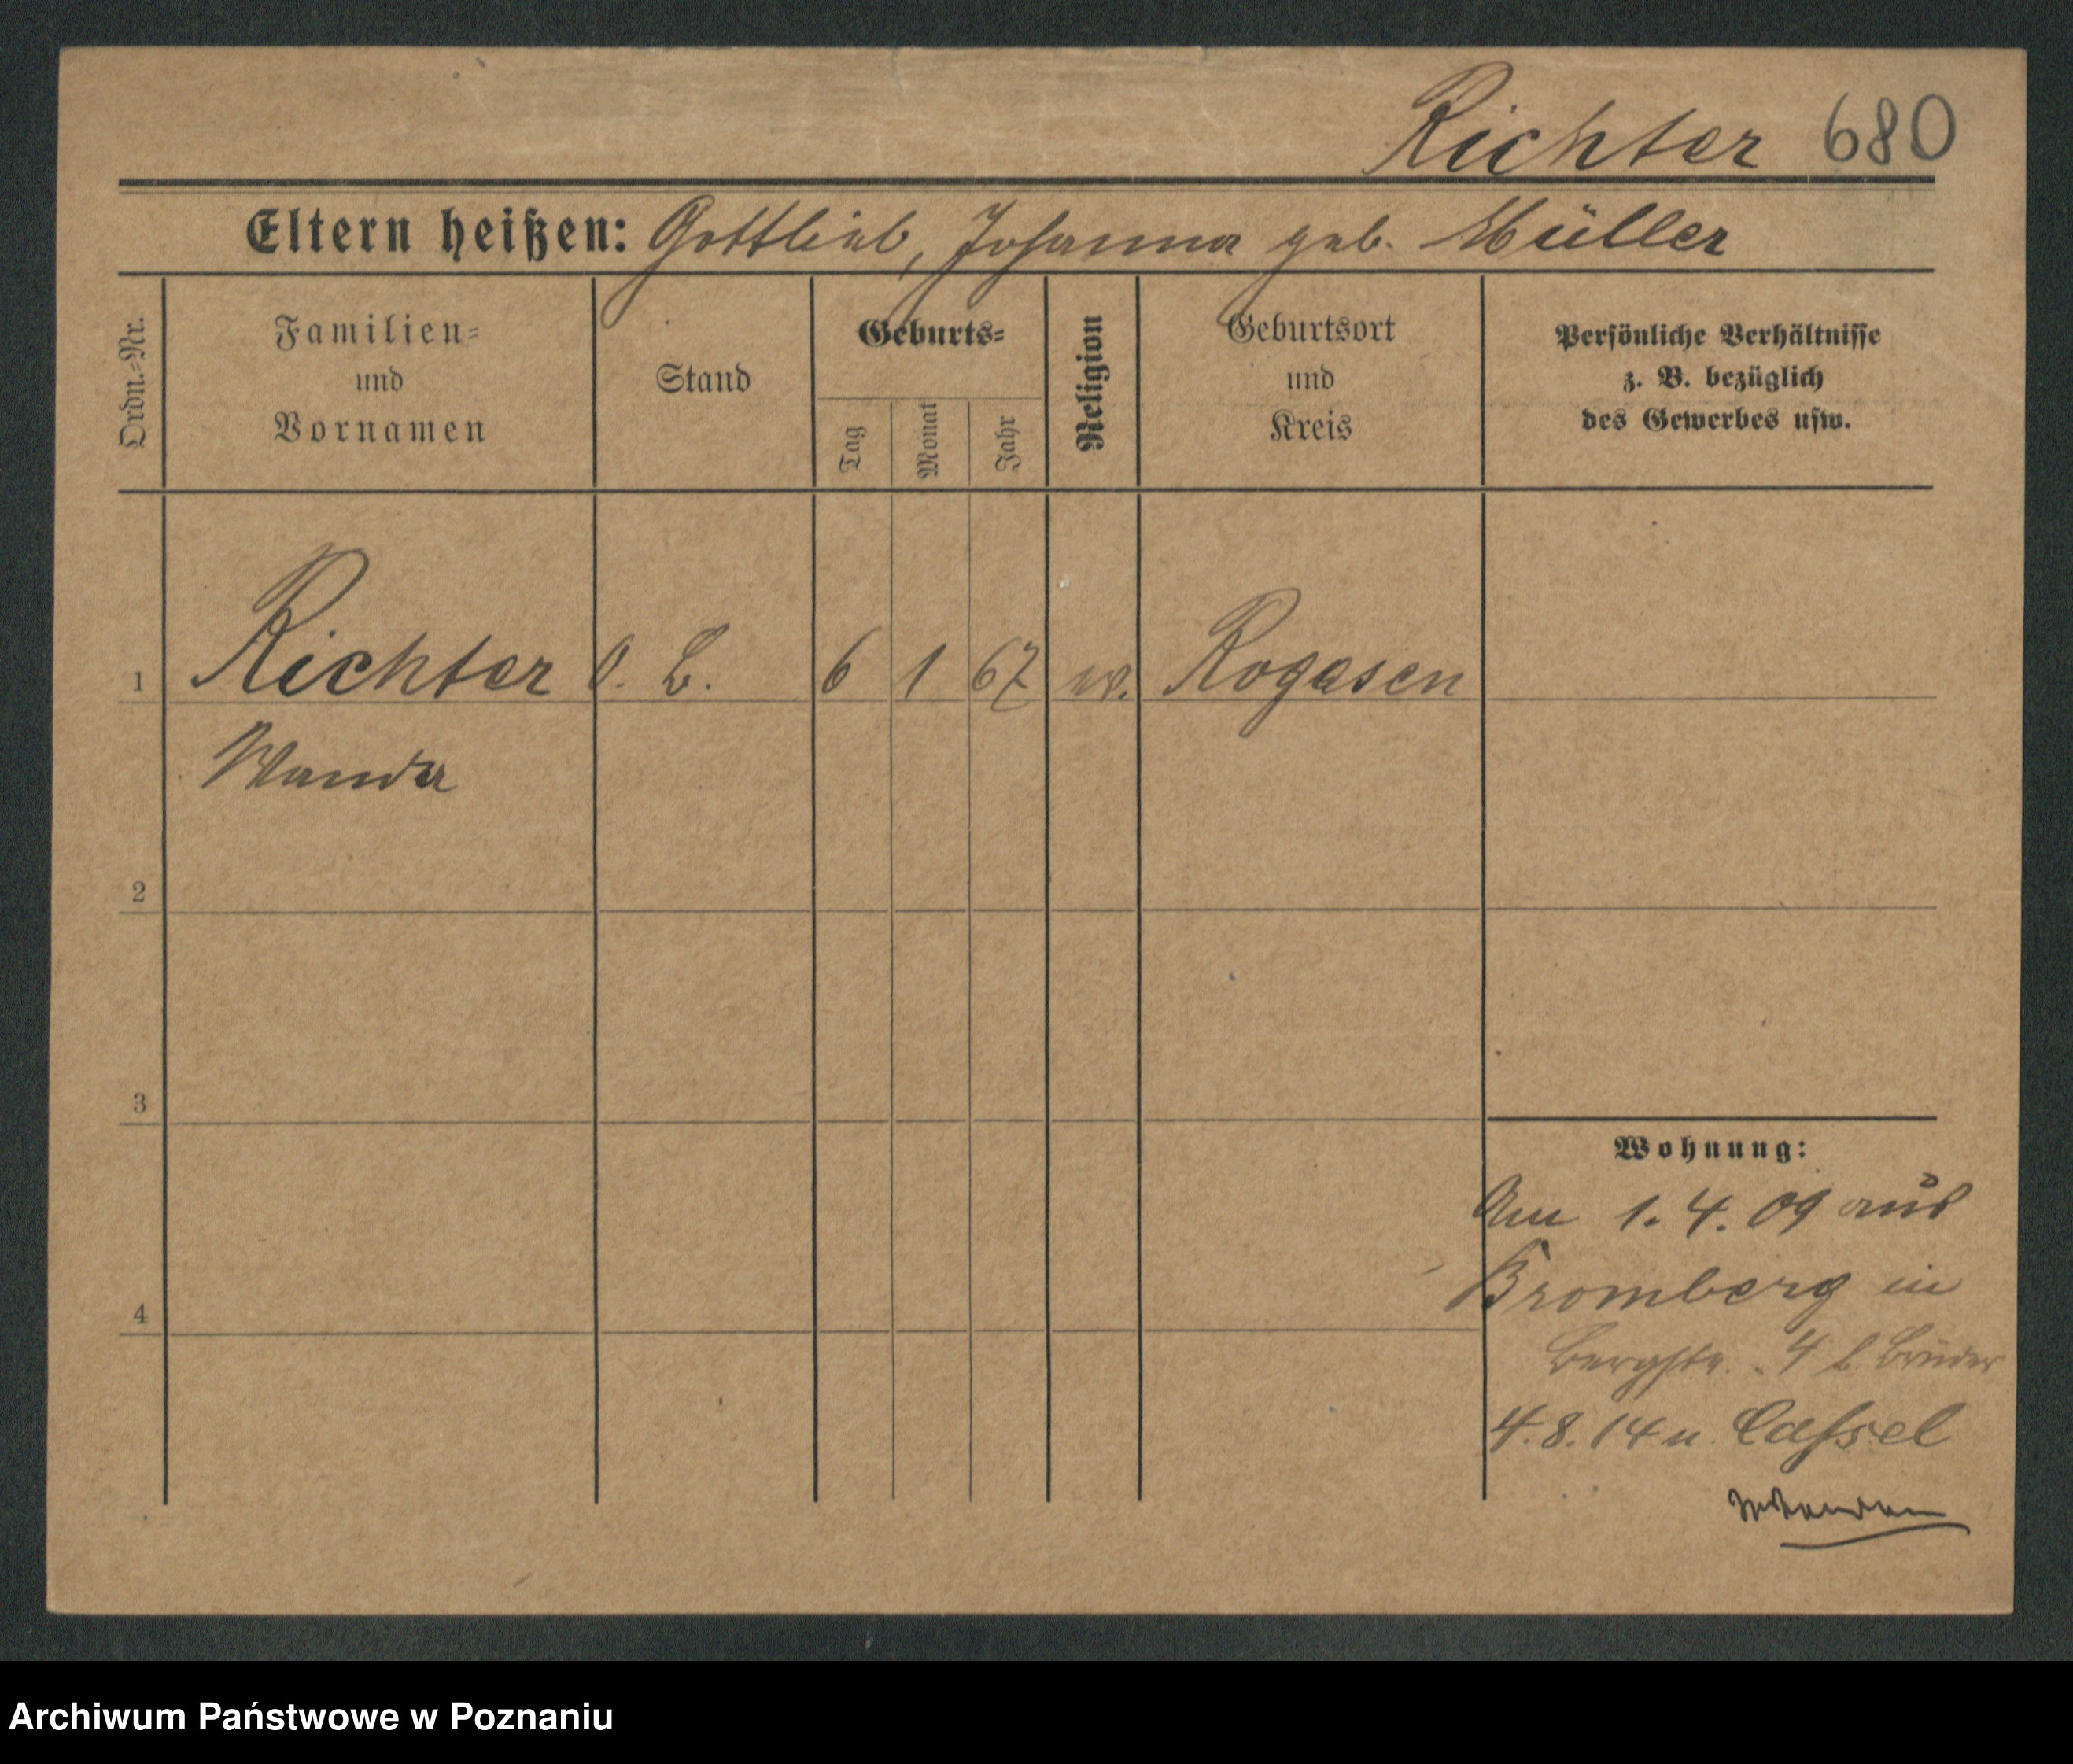 Richter 680
Eltern heißen: Gottlieb, Johanna geb. Müller
Ordn.-Nr.
Familien-
und
Vornamen
Stand
Geburts-
Tag
Monat
Jahr
Religion
Geburtsort
und
Kreis
Persönliche Verhältnisse
z. B. bezüglich
des Gewerbes usw.
1 Richter O. L. 6 1 67 ev. Rogasen
Wanda
2
3
4
Wohnung:
Am 1. 4. 09 aus
Bromberg in
Bergstr. 4 b. Bruder
4. 8. 14 n. Cassel
Archiwum Państwowe w Poznaniu